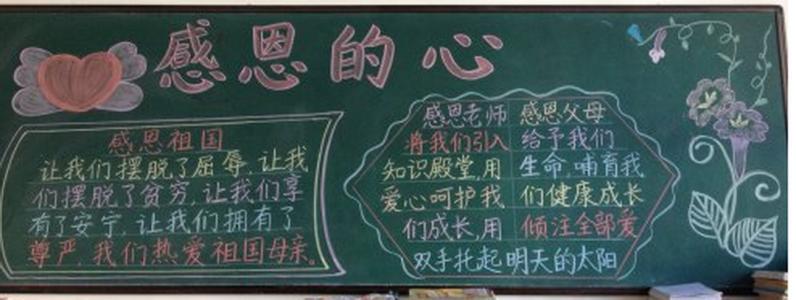 感恩的心
感恩祖国
让我们摆脱了屈辱,让我
们摆脱了贫穷,让我们享
有了安宁,让我们拥有了
尊严,我们热爱祖国母亲。
感恩老师
将我们引入
知识殿堂,用
爱心呵护我
们成长,用
双手托起明天的太阳
感恩父母
给予我们
生命,哺育我
们健康成长
倾注全部爱